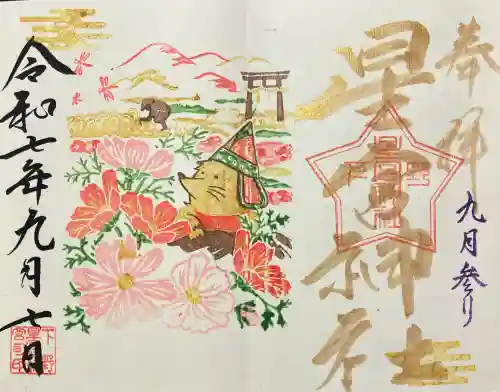 奉拝
九月参り
星宮神社
令和七年九月七日